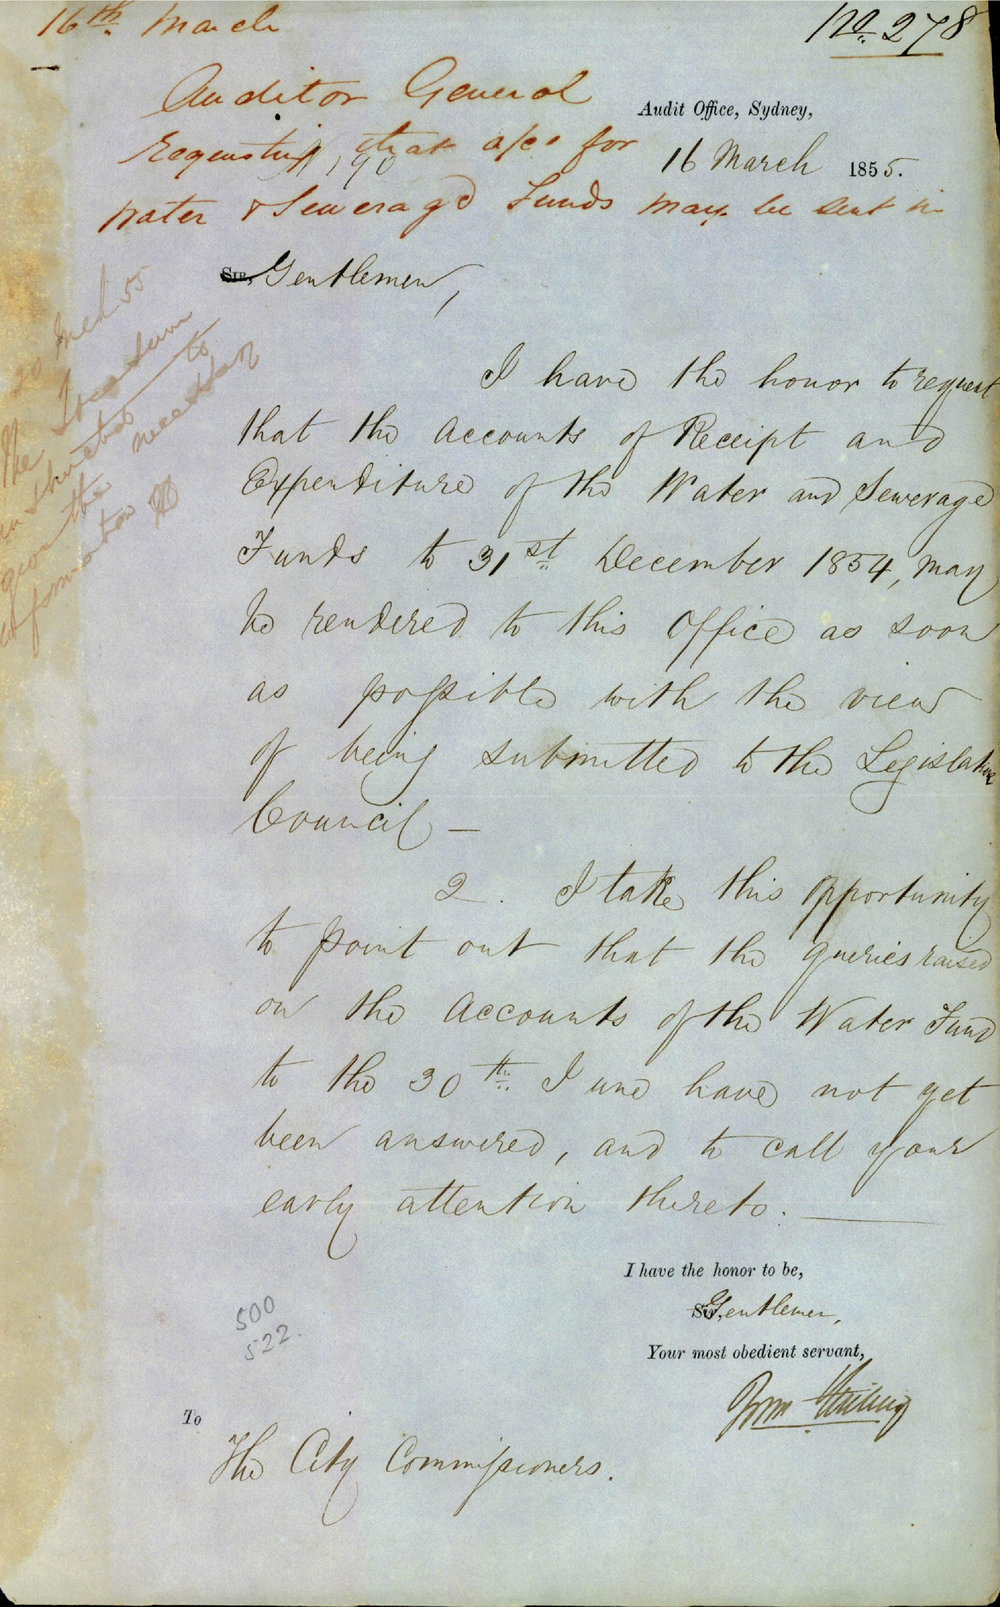 16th. March
No. 278
Auditor General
Audit Office, Sydney,
requesting that a/cs for
190
16 March 1855.
Water & Sewerage Funds may be sent in
Sir, Gentlemen,
20 Mch 55
The Treasurer
instructed to
give the necessary
information
I have the honor to request
that the Accounts of Receipt and
Expenditure of the Water and Sewerage
Funds to 31st December 1854, may
be rendered to this Office as soon
as possible with the view
of being submitted to the Legislative
Council —
2. I take this opportunity
to point out that the queries raised
on the Accounts of the Water Fund
to the 30th. June have not yet
been answered, and to call your
early attention thereto.
I have the honor to be,
Sir, Gentlemen,
Your most obedient servant,
500
522.
To
The City Commissioners.